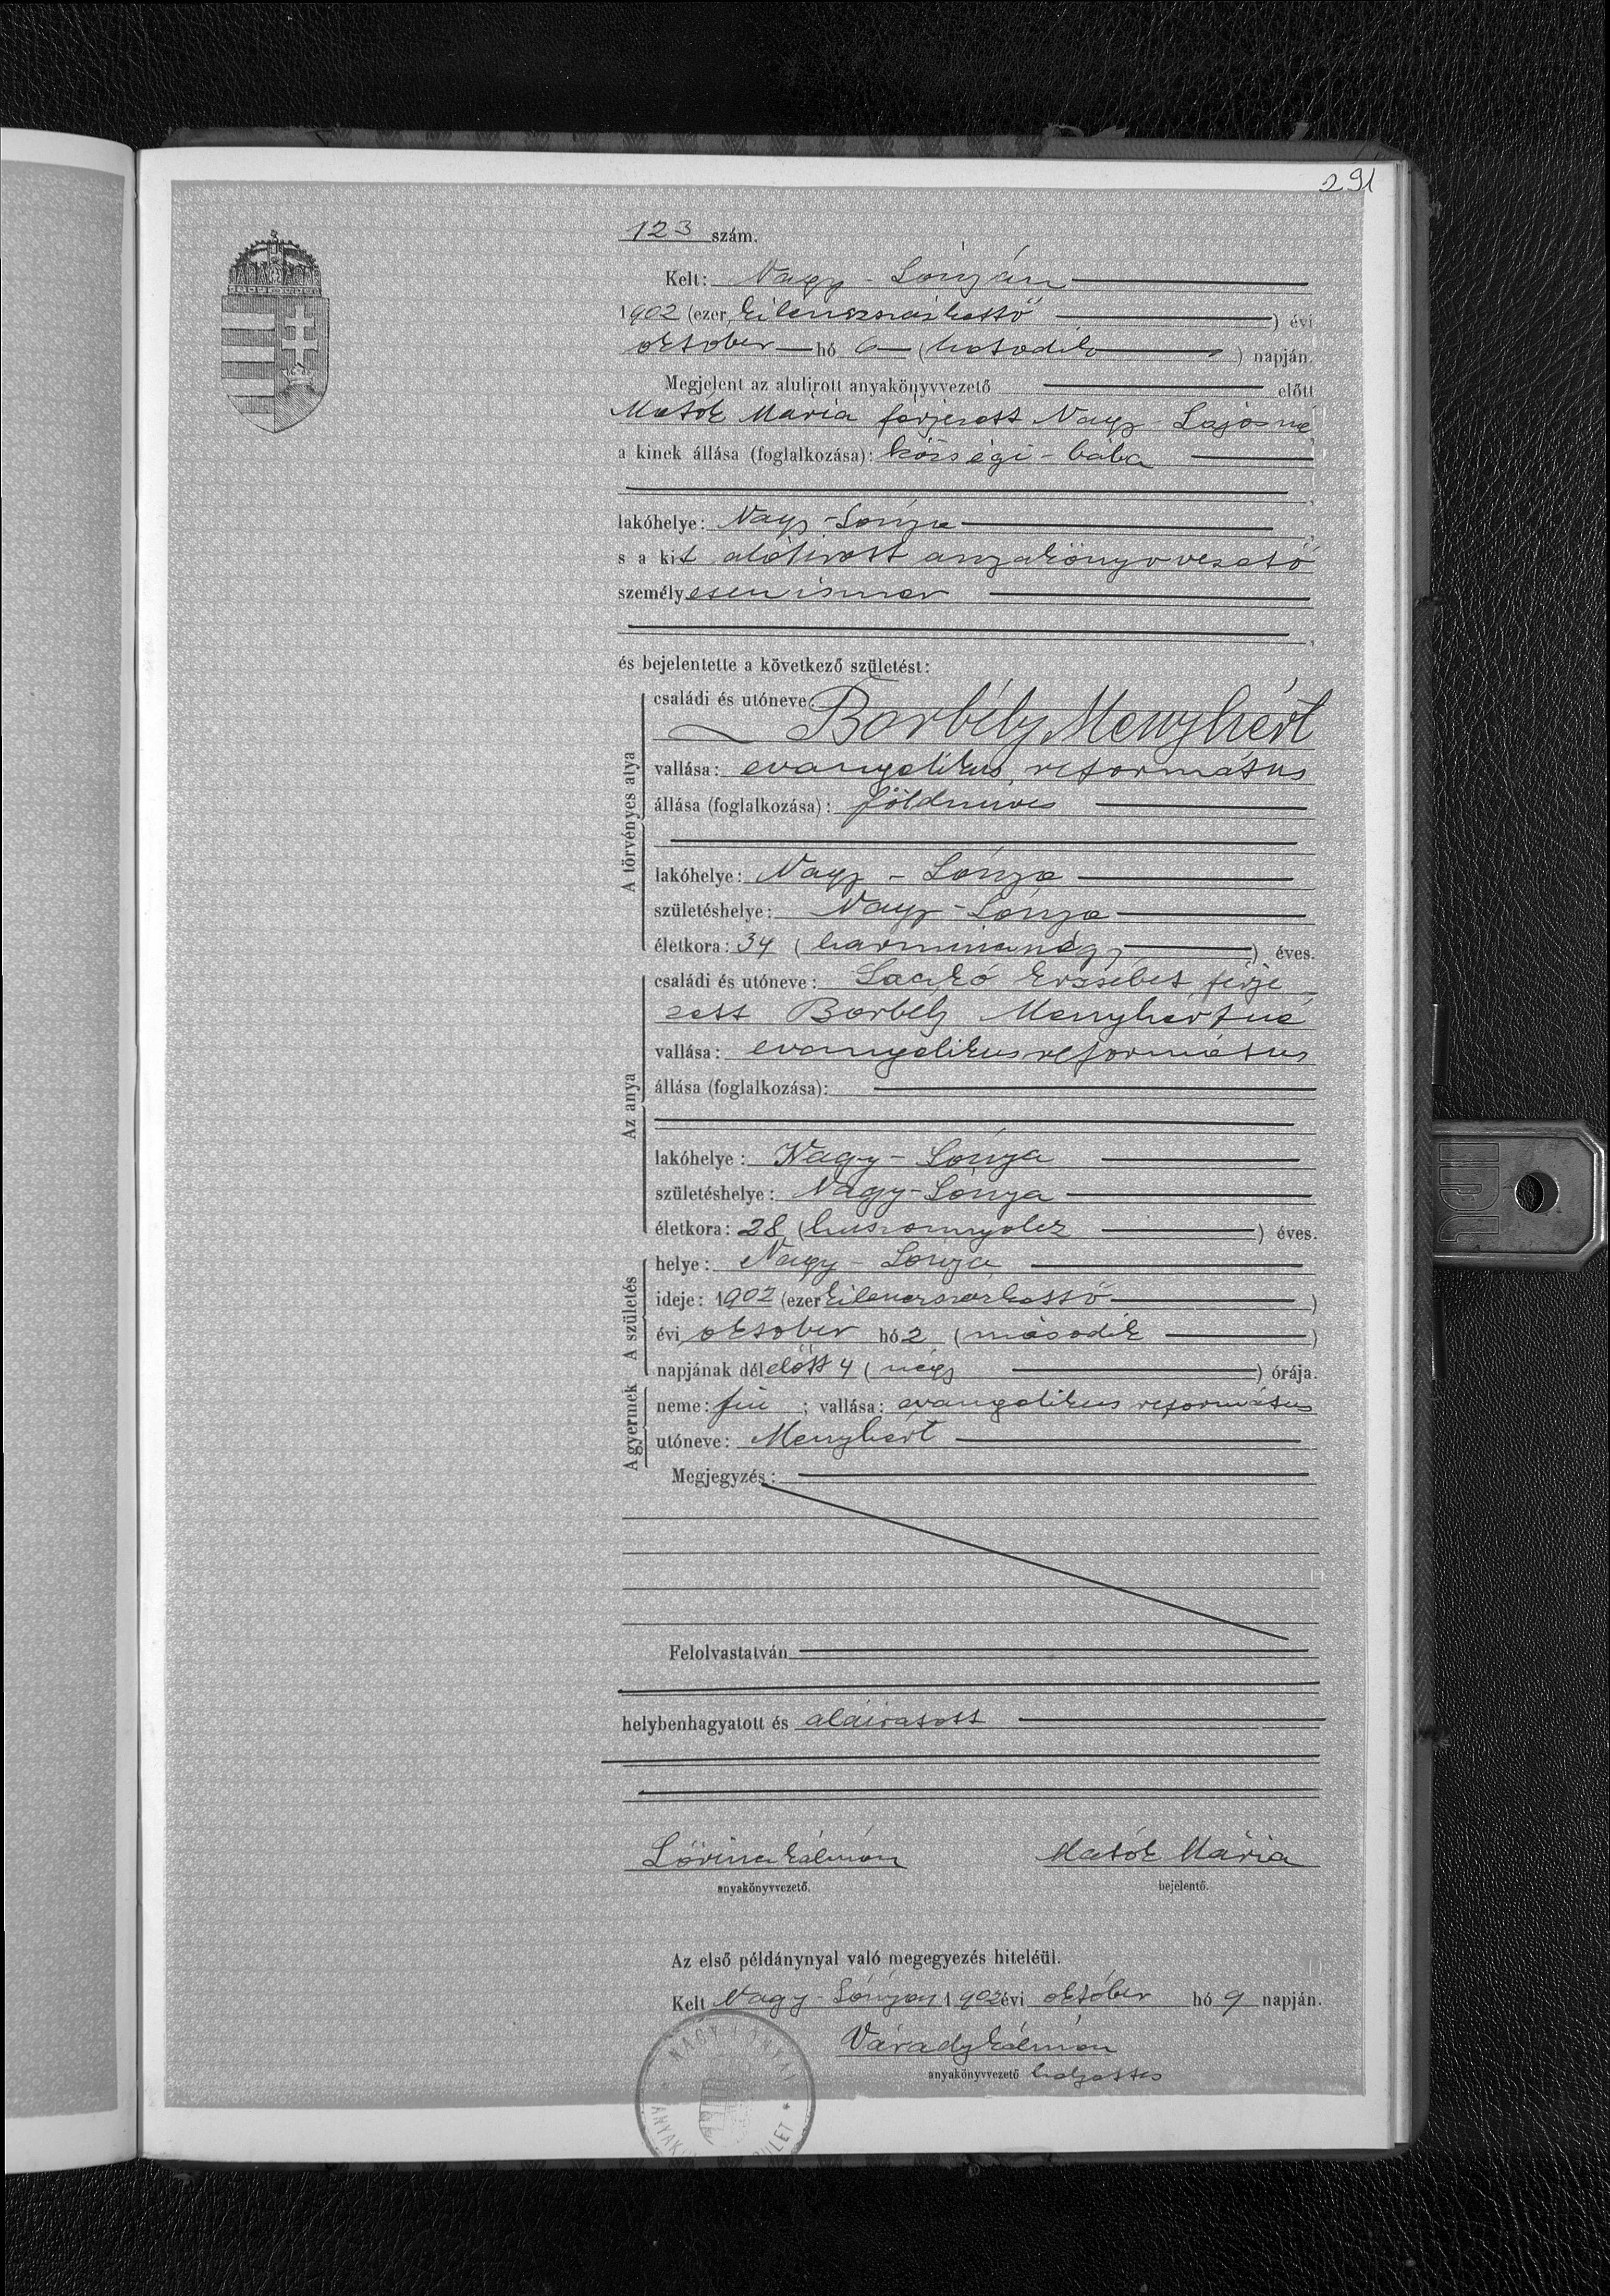 291
123 szám.
Kelt: Nagy-Lónyán
1902 (ezer kilenczszázkettő) évi
október hó 6 (hatodik) napján.
Megjelent az alulirott anyakönyvvezető előtt
Matók Mária férjezett Nagy Lajosné,
a kinek állása (foglalkozása): községi-bába
lakóhelye: Nagy-Lónya
s a kit alólirott anyakönyvvezető
személyesen ismer
és bejelentette a következő születést:
A törvényes atya
családi és utóneve:
Borbély Menyhért
vallása: evangélikus református
állása (foglalkozása): földmives
lakóhelye: Nagy-Lónya
születéshelye: Nagy-Lónya
életkora: 34 (harmincnégy) éves.
Az anya
családi és utóneve: Laczkó Erzsébet férje
zett Borbély Menyhértné
vallása: evangelikus református
állása (foglalkozása):
lakóhelye: Nagy-Lónya
születéshelye: Nagy-Lónya
életkora: 28 (huszonnyolcz) éves.
A születés
helye: Nagy-Lónya
ideje: 1902 (ezer kilenczszázkettő)
évi október hó 2 (második)
napjának délelőtt 4 (négy) órája.
A gyermek
neme: fiú; vallása: evangelikus református
utóneve: Menyhért
Megjegyzés:
Felolvastatván
helybenhagyatott és aláiratott
Lőrincz Kálmán Matók Mária
anyakönyvvezető. bejelentő.
Az első példánynyal való megegyezés hiteléül.
Kelt Nagy-Lónyán 1902 évi október hó 9 napján.
Várady Kálmán
anyakönyvvezető helyettes
NAGY LÓNYAI